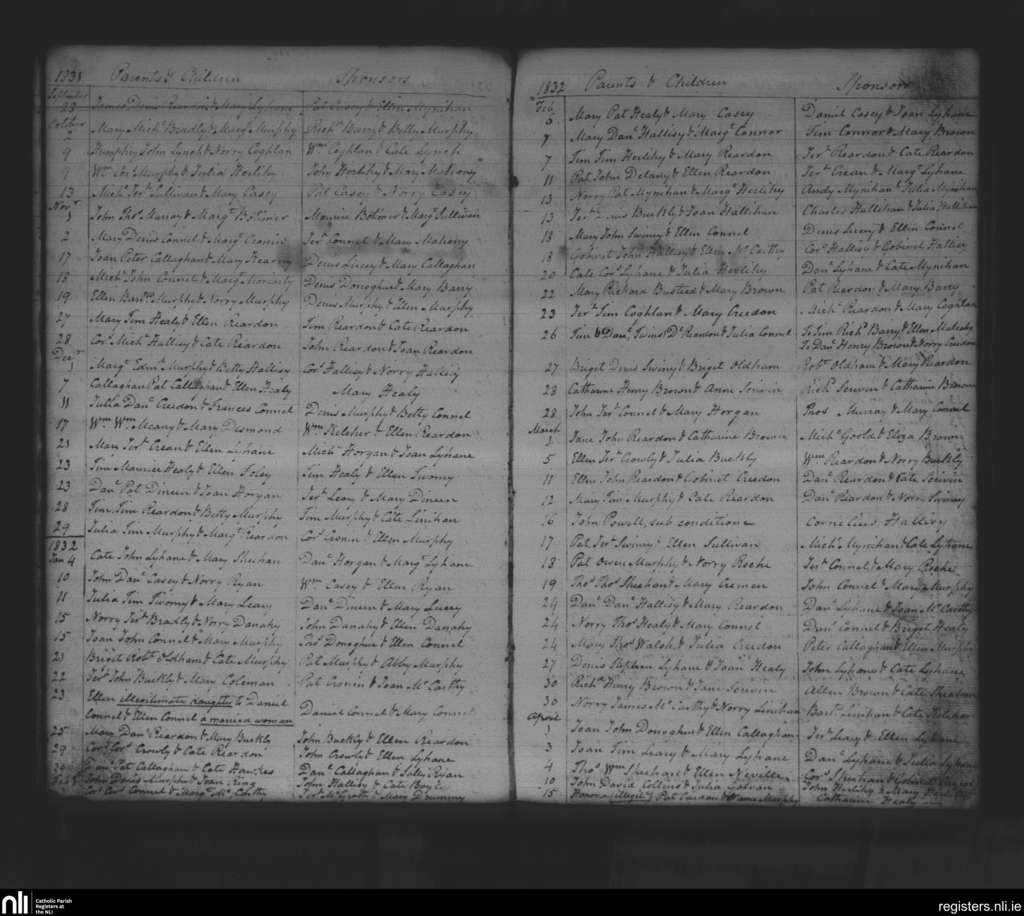 1831 Parents & Children Sponsors
September
28 James Denis Reardon & Mary Lyhane Pat Casey & Ellen Mynihan
October
Mary Mich. Bradly & Marg. Murphy Rich. Barry & Betty Murphy
9 Humphry John Lynch & Norry Coghlan Wm Coghlan & Cate Lynch
9 Wm Cor. Murphy & Julia Herlihy John Herlihy & Mary Mahony
13 Mich. Jer. Sullivan & Mary Casey Pat Casey & Norry Casey
Novr
1 John Thos Murray & Margt Maurice & Margt Sullivan
2 Mary Denis Connel & Margt Cronin Jer. Connel & Mary Mahony
17 Joan Peter Callaghan & Mary Kearny Denis Lucey & Mary Callaghan
18 Mich. John Connel & Margt Moriarty Denis Donoghue & Mary Barry
19 Ellen Barth. Murphy & Norry Murphy Denis Murphy & Ellen Murphy
27 Mary Tim Healy & Ellen Reardon Tim Reardon & Cate Reardon
28 Cor. Mich Hallisy & Cate Reardon John Reardon & Joan Reardon
Decr
1 Margt Edm. Murphy & Betty Hallisy Cor. Hallisy & Norry Hallisy
7 Callaghan Pat Callaghan & Ellen Healy Mary Healy
11 Julia Dan. Creedon & Frances Connel Denis Murphy & Betty Connel
17 Wm Wm Meany & Mary Desmond Wm Keleher & Ellen Reardon
21 Mary Jer. Crean & Ellen Lyhane Mich. Horgan & Joan Lyhane
23 Tim Maurice Healy & Ellen Foley Tim Healy & Ellen Twomy
23 Dan. Pat Dineen & Joan Horgan Jer. Leary & Mary Dineen
28 Tim Tim Reardon & Betty Murphy Tim Murphy & Cate Linihan
29 Julia Tim Murphy & Margt Reardon Cor. Cronin & Ellen Murphy
1832
Jan 4 Cate John Lyhane & Mary Sheehan Dan. Horgan & Margt Lyhane
10 John Dan. Casey & Norry Ryan Wm Casey & Ellen Ryan
11 Julia Tim Twomy & Mary Leary Dan. Dineen & Mary Lucey
15 Norry Jer. Bradly & Norry Danahy John Danahy & Ellen Danahy
15 Joan John Connel & Mary Murphy Thos Donoghue & Ellen Connel
21 Briget Robt Oldham & Cate Murphy Pat Murphy & Abby Murphy
22 Jer. John Buckly & Mary Coleman Pat Cronin & Joan McCarthy
23 Ellen illegitimate daughter to Daniel
Connel & Ellen Connel a married woman Daniel Connel & Mary Connel
25 Mary Dan. Reardon & Mary Buckly John Buckly & Ellen Reardon
29 Cor. Cor. Crowly & Cate Reardon John Crowly & Ellen Lyhane
Dan. Pat Callaghan & Cate Hawkes Dan. Callaghan & July Ryan
Feb John Denis Murphy & Joan John Hallisy & Cate Boyle
Cor. Connel & Margt McCarthy Jer. McGrath & Mary Drummy
1832 Parents & Children Sponsors
Feb
6 Mary Pat Healy & Mary Casey Daniel Casey & Joan Lyhane
7 Mary Dan. Hallisy & Margt Connor Tim Connor & Mary Brown
7 Tim Tim Herlihy & Mary Reardon Jer. Reardon & Cate Reardon
11 Pat John Delany & Ellen Reardon Jer. Crean & Margt Lyhane
13 Norry Pat Mynihan & Margt Herlihy Andy Mynihan & Julia Mynihan
13 Jer. Buckly & Joan Hallihan Charles Hallihan & Julia Hallihan
18 Mary John Swiney & Ellen Connel Denis Lucey & Ellen Connel
18 Gobinet John Hallisy & Ellen McCarthy Cor. Hallisy & Gobinet Hallisy
20 Cate Cor. Lyhane & Julia Herlihy Dan. Lyhane & Cate Mynihan
22 Mary Richard Busteed & Mary Brown Pat Reardon & Mary Barry
23 Jer. Tim Coghlan & Mary Creedon Mich. Reardon & Mary Coghlan
26 Tim & Dan. Twins Ds Reardon & Julia Connel To Tim Rich. Barry & Ellen
To Dan. Henry Brown & Norry Creedon
27 Briget Denis Swiney & Briget Oldham Robt Oldham & Mary Reardon
28 Catharine Henry Brown & Anne Scriven Rich. Scriven & Catharine Brown
28 John Jer. Connel & Mary Horgan Thos Murray & Mary Connel
March
1 Jane John Reardon & Catharine Brown Mich. Gould & Eliza Brown
5 Ellen Jer. Crowly & Julia Buckly Wm Reardon & Norry Buckly
11 Ellen John Reardon & Gobinet Creedon Dan. Reardon & Cate Scriven
12 Mary Tim Murphy & Cate Reardon Dan. Reardon & Norry Swiney
16 John Powell, sub conditione Cornelius Hallisy
17 Pat Jer. Swiney & Ellen Sullivan Mich. Mynihan & Cate Lyhane
18 Pat Owen Murphy & Norry Roche Jer. Connel & Mary Roche
19 Thos Thos Sheehan & Mary Cremen John Connel & Mary Murphy
24 Dan. Dan. Hallisy & Mary Reardon Dan. Lyhane & Joan McCarthy
24 Norry Thos Healy & Mary Connel Dan. Connel & Briget Healy
24 Mary Thos Walsh & Julia Creedon Peter Callaghan & Ellen Murphy
27 Denis Stephen Lyhane & Joan Healy John Lyhane & Cate Lyhane
30 Rich. Henry Brown & Jane Scriven Allen Brown & Cate Sheehan
30 Norry James McCarthy & Norry Linihan Bart. Linihan & Cate Keleher
April
1 Joan John Donoghue & Ellen Callaghan Jer. Leary & Ellen Lyhane
3 Joan Tim Leary & Mary Lyhane Dan. Lyhane & Julia Lyhane
4 Thos Wm Sheehan & Ellen Neville Cor. Sheehan &
10 John David Collins & Julia Galvan John Herlihy & Mary Herlihy
15 Honora (illegit.) Pat & Murphy Catharine Healy
nli Catholic Parish
Registers at
the NLI
registers.nli.ie